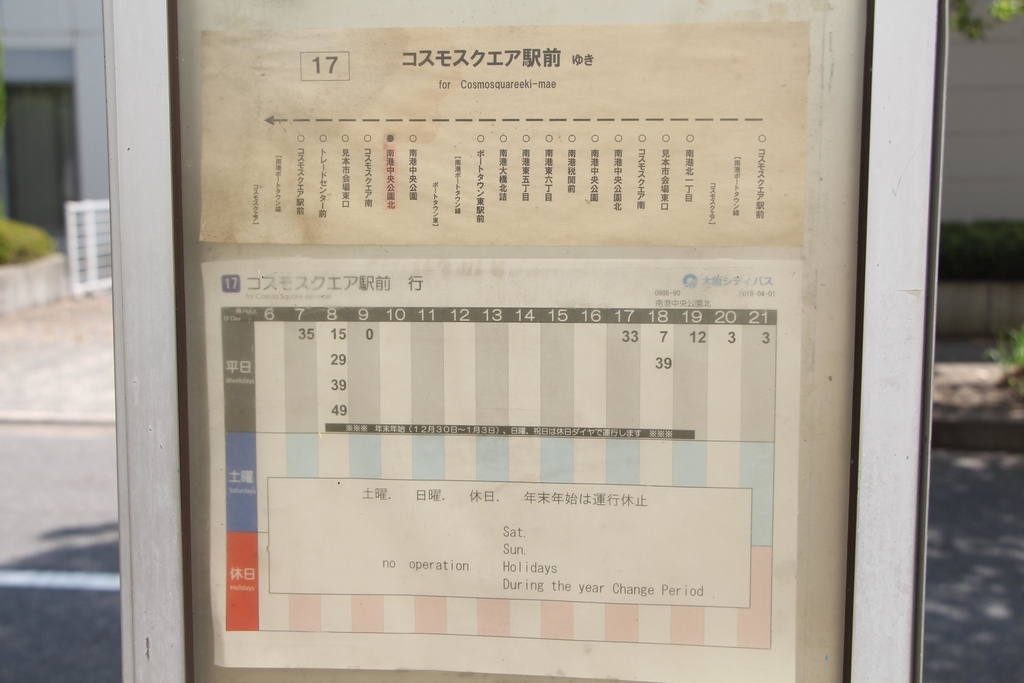 17
コスモスクエア駅前 ゆき
for Cosmosquareeki-mae
【南港ポートタウン線
コスモスクエア】
コスモスクエア駅前
トレードセンター前
見本市会場東口
コスモスクエア南
南港中央公園北
南港中央公園
【南港ポートタウン線
ポートタウン東】
ポートタウン東駅前
南港大橋北詰
南港東五丁目
南港東六丁目
南港税関前
南港中央公園
南港中央公園北
コスモスクエア南
見本市会場東口
南港北一丁目
【南港ポートタウン線
コスモスクエア】
コスモスクエア駅前
17 コスモスクエア駅前 行
大阪シティバス
南港中央公園北
6 7 8 9 10 11 12 13 14 15 16 17 18 19 20 21
平日
Weekdays
35 15 0 33 7 12 3 3
29 39
39
49
※※※ 年末年始(12月30日~1月3日)、日曜、祝日は休日ダイヤで運行します ※※※
土曜
Saturdays
土曜. 日曜. 休日. 年末年始は運行休止
Sat.
Sun.
no operation Holidays
During the year Change Period
休日
Holidays